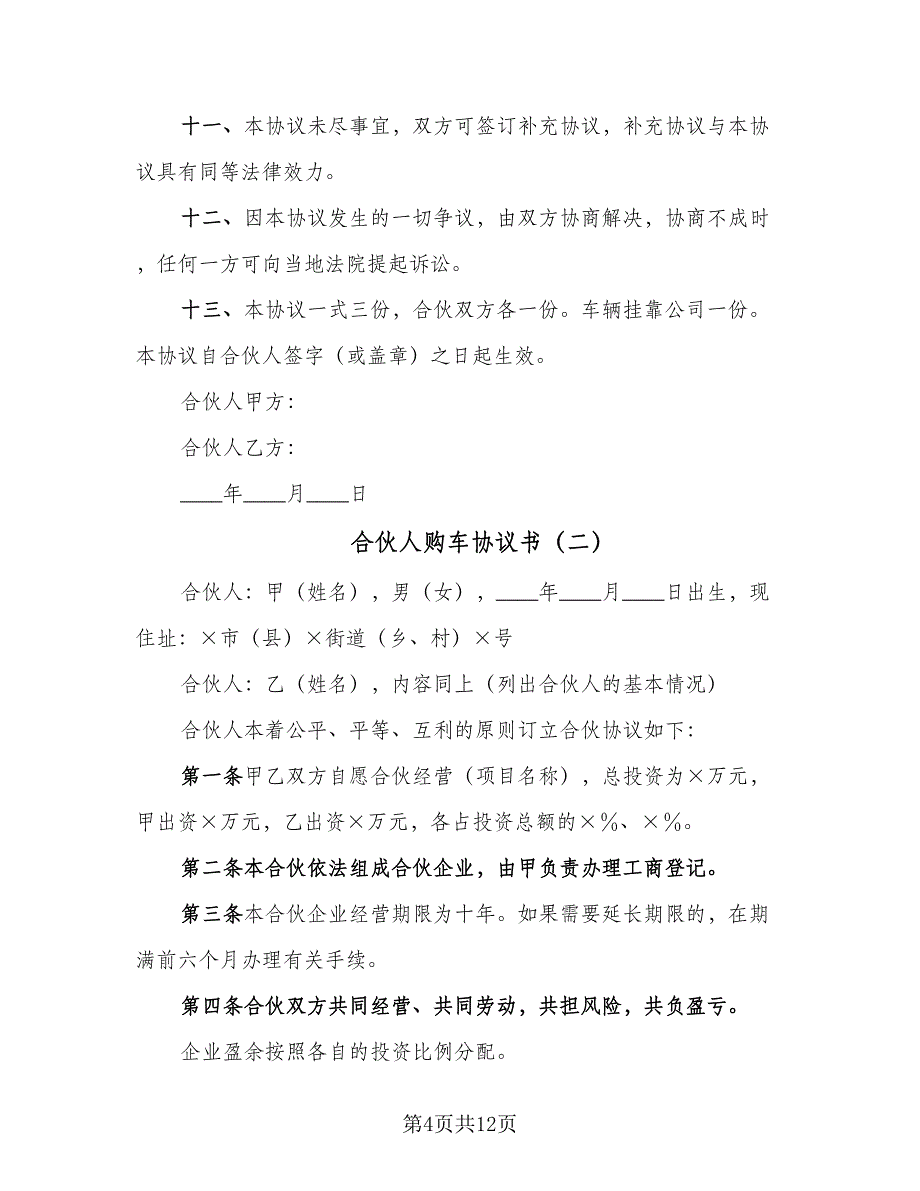 十一、本协议未尽事宜，双方可签订补充协议，补充协议与本协
议具有同等法律效力。
十二、因本协议发生的一切争议，由双方协商解决，协商不成时
，任何一方可向当地法院提起诉讼。
十三、本协议一式三份，合伙双方各一份。车辆挂靠公司一份。
本协议自合伙人签字（或盖章）之日起生效。
合伙人甲方：
合伙人乙方：
____年____月____日
合伙人购车协议书（二）
合伙人：甲（姓名），男（女），____年____月____日出生，现
住址：×市（县）×街道（乡、村）×号
合伙人：乙（姓名），内容同上（列出合伙人的基本情况）
合伙人本着公平、平等、互利的原则订立合伙协议如下：
第一条甲乙双方自愿合伙经营（项目名称），总投资为×万元，
甲出资×万元，乙出资×万元，各占投资总额的×%、×%。
第二条本合伙依法组成合伙企业，由甲负责办理工商登记。
第三条本合伙企业经营期限为十年。如果需要延长期限的，在期
满前六个月办理有关手续。
第四条合伙双方共同经营、共同劳动，共担风险，共负盈亏。
企业盈余按照各自的投资比例分配。
第4页共12页